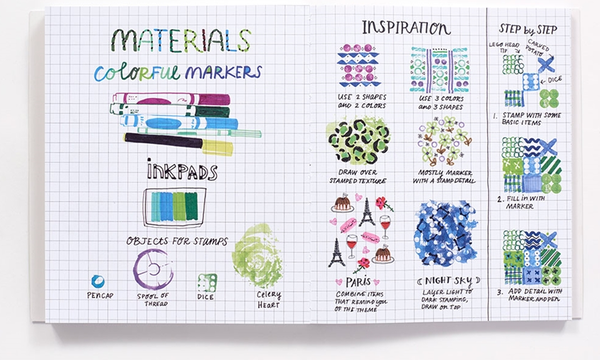 MATERIALS
COLORFUL MARKERS
INKPADS
OBJECTS FOR STAMPS
PENCAP
SPOOL OF
THREAD
DICE
Celery
HEART
INSPIRATION
USE 2 SHAPES
and 2 COLORS
USE 3 COLORS
and 3 SHAPES
DRAW OVER
STAMPED TEXTURE
MOSTLY MARKER
WITH A STAMP DETAIL
PARIS
COMBINE ITEMS
THAT REMIND YOU
OF THE THEME
NIGHT SKY
LAYER LIGHT TO
DARK STAMPING,
DRAW ON TOP
STEP by STEP
LEGO HEAD
TIP
CARVED
POTATO
DICE
1. STAMP WITH SOME
BASIC ITEMS
2. FILL IN WITH
MARKER
3. ADD DETAIL WITH
MARKER AND PEN